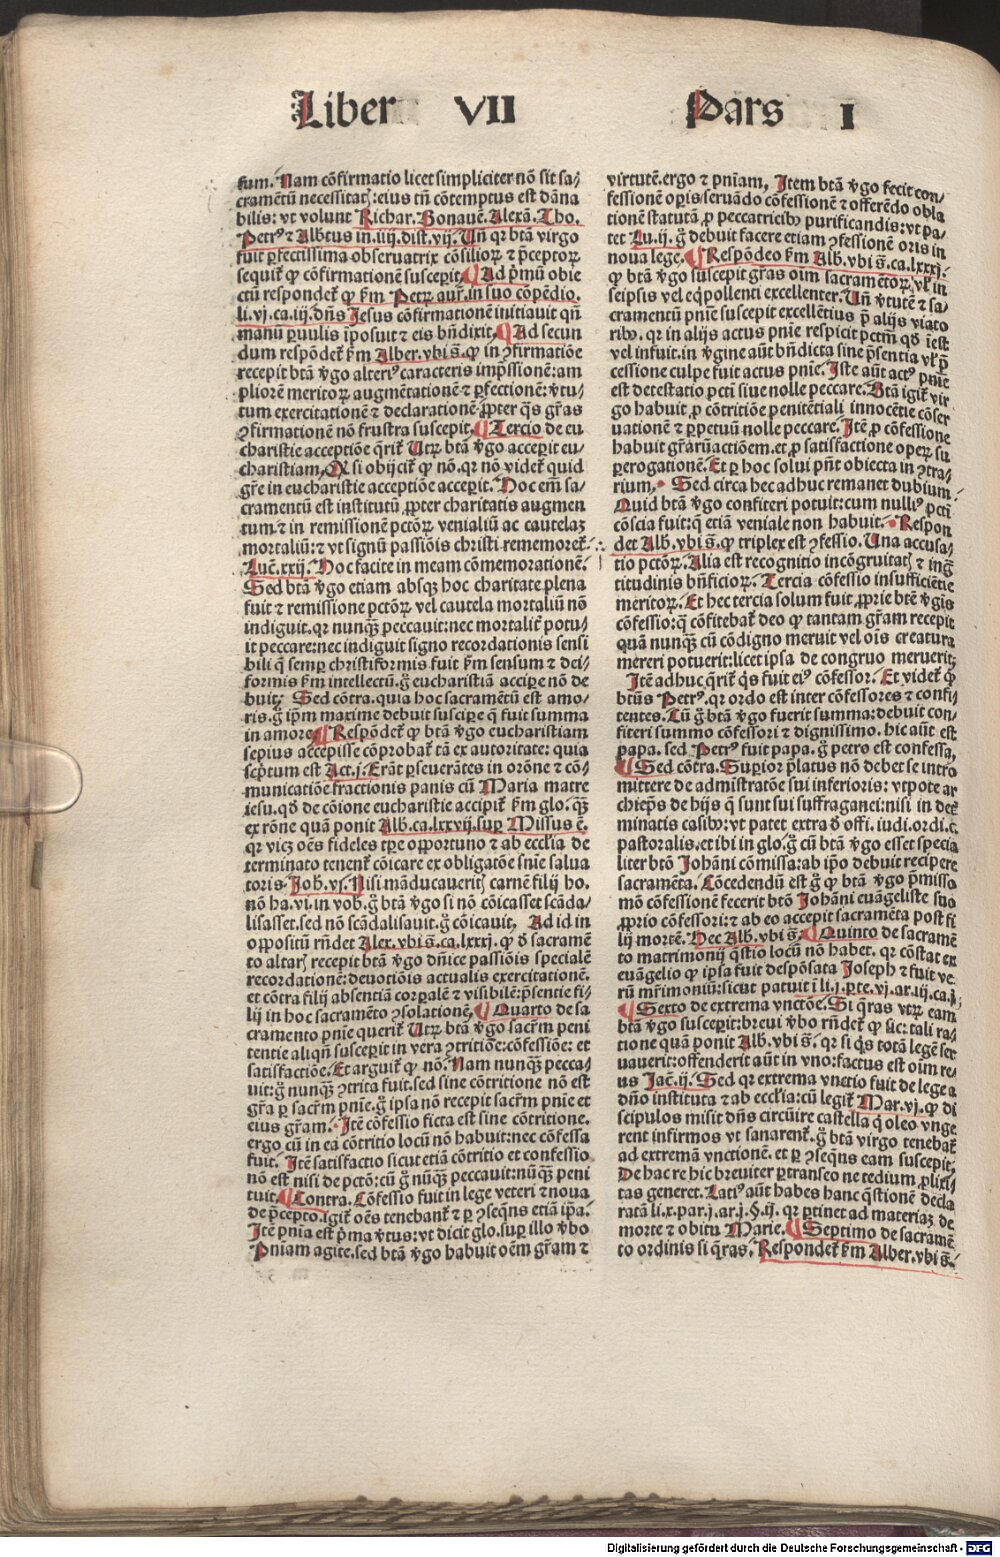 Liber VII Pars I
sum. Nam cōfirmatio licet simpliciter nō sit sa/
cramētū necessitatꝭ: eius tñ cōtemptus est dāna
bilis: vt volunt Richar. Bonauē. Alexā. Tho.
Petrꝰ ⁊ Albtus in .iiij. dist. vij. Uñ qr btā virgo
fuit ꝑfectissima obseruatrix cōsilioꝝ ⁊ p̄ceptoꝝ
sequiť ꝙ cōfirmationē suscepit. ¶ Ad pͥmū obie
ctū respondeť ꝙ ẜm Petꝝ aur̄. in suo cōpēdio.
li. vj. ca. iij. dn̄s Jesus cōfirmationē initiauit qñ
manū ꝑuulis īposuit ⁊ eis bn̄dixit. ¶ Ad secun
dum respōdeť ẜm Alber. vbi s̄. ꝙ in ꝯfirmatiōe
recepit btā ꝟgo alteriꝰ caracteris imp̄ssionē: am
pliorē meritoꝝ augmētationē ⁊ ꝑfectionē: ꝟtu/
tum exercitationē ⁊ declarationē ꝓpter q̄s gr̄as
ꝯfirmationē nō frustra suscepit. ¶ Tercio de eu
charistie acceptiōe q̄riť Utꝝ btā ꝟgo acceꝑit eu/
charistiam. Et si obijciť ꝙ nō. qr nō videť quid
gr̄e in eucharistie acceptiōe acceꝑit. Hoc em̄ sa/
cramentū est institutū ꝓpter charitatis augmen
tum. ⁊ in remissionē pctōꝝ venialiū ac cautelaꝫ
mortaliū: ⁊ vt signū passiōis christi rememoreť.
Luē. xxij. Hoc facite in meam cōmemorationē.
Sed btā ꝟgo etiam absqꝫ hoc charitate plena
fuit ⁊ remissione pctōꝝ vel cautela mortaliū nō
indiguit. qr nunqꝫ̄ peccauit: nec mortaliť potu/
it peccare: nec indiguit signo recordationis sensi
bili q̄ semꝑ christiformis fuit ẜm sensum ⁊ dei/
formis ẜm intellectū. g̊ eucharistiā acciꝑe nō de
buit. Sed cōtra. quia hoc sacramētū est amo/
ris. g̊ ip̄m maxime debuit susciꝑe q̄ fuit summa
in amore. ¶ Respōdeť ꝙ btā ꝟgo eucharistiam
sepius accepisse cōprobať tā ex autoritate: quia
scͥptum est Act. j. Erāt ꝑseuerātes in orōne ⁊ cō/
municatiōe fractionis panis cū Maria matre
iesu. qd̄ de cōione eucharistie accipiť ẜm glo. qꝫ̄
ex rōne quā ponit Alb. ca. lxxvij. suꝑ Missus ē.
qr vicꝫ oēs fideles tꝑe opportuno ⁊ ab eccl̄ia de
terminato tenenť cōicare ex obligatōe sn̄ie salua
toris. Joh̄. vj. Nisi māducaueritꝭ carnē filij ho.
nō ha. vi. in vob. g̊ btā ꝟgo si nō cōicasset scāda/
lisasset. sed nō scādalisauit. g̊ cōicauit. Ad id in
oppositū rn̄det Alex. vbi s̄. ca. lxxxj. ꝙ ō sacramē
to altarꝭ recepit btā ꝟgo dn̄ice passiōis specialē
recordationē: deuotiōis actualis exercitationē.
et cōtra filij absentiā corꝑalē ⁊ visibilē: p̄sentie fi/
lij in hoc sacramēto ꝯsolationē. ¶ Quarto de sa
cramento pnīe queriť. Utꝝ btā ꝟgo sacr̄m peni
tentie aliqñ susceꝑit in vera ꝯtritiōe: cōfessiōe: et
satisfactiōe. Et arguiť ꝙ nō. Nam nunqꝫ̄ pecca/
uit: g̊ nunqꝫ̄ ꝯtrita fuit. sed sine cōtritione nō est
gr̄a ꝑ sacr̄m pnīe. g̊ ipsa nō recepit sacr̄m pnīe et
eius gr̄am. Itē cōfessio ficta est sine cōtritione.
ergo cū in ea cōtritio locū nō habuit: nec cōfessa
fuit. Itē satisfactio sicut etiā cōtritio et confessio
nō est nisi de pctō: cū g̊ nūqꝫ̄ peccauit: nūqꝫ̄ peni
tuit. ¶ Contra. Cōfessio fuit in lege veteri ⁊ noua
de p̄cepto. igiť oēs tenebanť ⁊ ꝑ ꝯseqn̄s etiā ip̄a.
Itē pnīa est pͥma ꝟtus: vt dicit glo. suꝑ illo ꝟbo
Pniam agite. sed btā ꝟgo habuit oēm gr̄am ⁊
virtutē. ergo ⁊ pnīam, Item btā ꝟgo fecit con/
fessionē oꝑis seruādo cōfessionē ⁊ offerēdo obla
tionē statutā ꝓ peccatricibꝰ purificandis: vt pa/
tet Lu. ij. g̊ debuit facere etiam ꝯfessionē oris in
noua lege. ¶ Respōdeo ẜm Alb. vbi s̄. ca. lxxxj.
ꝙ btā ꝟgo suscepit gr̄as oīm sacramētoꝝ vĺ in
seipsis vel eqͥpollenti excellenter. Uñ ꝟtutē ⁊ sa/
cramentū pnīe suscepit excellētius p̄ alijs viato
ribꝰ. qr in alijs actus pnīe respicit pctm̄ qd̄ īest
vel infuit. in ꝟgine aūt bn̄dicta sine p̄sentia vĺ p̄
cessione culpe fuit actus pnīe. Iste aūt actꝰ pnīe
est detestatio pctī siue nolle peccare. Btā igiť vir
go habuit ꝓ cōtritiōe penitētiali innocētie cōser
uationē ⁊ ꝑpetuū nolle peccare. Itē ꝓ cōfessione
habuit gr̄arū actiōem. et ꝓ satisfactione opeꝝ su
ꝑerogationē. Et ꝑ hoc solui pn̄t obiecta in ꝯtra/
rium. Sed circa hec adhuc remanet dubium
Quid btā ꝟgo confiteri potuit: cum nulliꝰ pctī
cōscia fuit: q̄ etiā veniale non habuit. Respon
det Alb. vbi s̄. ꝙ triplex est ꝯfessio. Una accusa/
tio pctōꝝ. Alia est recognitio incōgruitatꝭ ⁊ ingͣ
titudinis bn̄ficioꝝ. Tercia cōfessio insufficiētie
meritoꝝ. Et hec tercia solum fuit ꝓprie btē ꝟgīs
cōfessio: q̄ cōfitebať deo ꝙ tantam gr̄am recepit
quā nunqꝫ̄ cū cōdigno meruit vel oīs creatura
mereri potuerit: licet ipsa de congruo meruerit.
Itē adhuc q̄riť qͥs fuit eiꝰ cōfessor. Et videť ꝙ
btūs Petrꝰ. qr ordo est inter cōfessores ⁊ confi
tentes. Cū g̊ btā ꝟgo fuerit summa: debuit con/
fiteri summo cōfessori ⁊ dignissimo. hic aūt est
papa. sed Petrꝰ fuit papa. g̊ petro est confessa.
¶ Sed cōtra. Superior p̄latus nō debet se intro
mittere de admīstratōe sui inferioris: vtpote ar
chiep̄s de hijs q̄ sunt sui suffraganei: nisi in deṫ
minatis casibꝰ: vt patet extra ō offi. iudi. ordi. c.
pastoralis. et ibi in glo. g̊ cū btā ꝟgo esset specia
liter btō Johāni cōmissa: ab ip̄o debuit recipere
sacramēta. Cōcedendū est g̊ ꝙ btā ꝟgo p̄misso
mō cōfessionē fecerit btō Johāni euāgeliste suo
ꝓprio cōfessori: ⁊ ab eo accepit sacramēta post fi
lij mortē. Hec Alb. vbi s̄. ¶ Quinto de sacramē
to matrimonij q̄stio locū nō habet. qr cōstat ex
euāgelio ꝙ ipsa fuit despōsata Joseph ⁊ fuit ve/
rū mr̄imoniū: sicut patuit ī li. j. ꝑte. vj. ar. iij. ca. j.
¶ Sexto de extrema vnctōe. Si q̄ras vtꝝ eam
btā ꝟgo susceꝑit: breui ꝟbo rn̄deť ꝙ sic: tali ra/
tione quā ponit Alb. vbi s̄. qr si qͥs totā legē ser
uauerit: offenderit aūt in vno: factus est oīm re/
us Jac̄. ij. Sed qr extrema vnctio fuit de lege a
dn̄o instituta ⁊ ab eccl̄ia: cū legiť Mar. vj. ꝙ di
scipulos misit dn̄s circūire castella qͥ oleo vnge
rent infirmos vt sanarenť. g̊ btā virgo tenebať
ad extremā vnctionē. et ꝑ ꝯseqn̄s eam suscepit.
De hac re hic breuiter ꝑtranseo ne tedium ꝓlixi/
tas generet. Latiꝰ aūt habes hanc q̄stionē decla
ratā li. x. par. j. ar. j. §. ij. qr ꝑtinet ad materiaꝫ de
morte ⁊ obitu Marie. ¶ Septimo de sacramē
to ordinis si q̄ras. Respondeť ẜm Alber. vbi s̄.
Digitalisierung gefördert durch die Deutsche Forschungsgemeinschaft - DFG